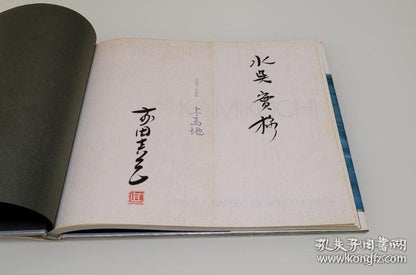 水 實様
上高地
前田真三
孔夫子旧书网
www.kongfz.com